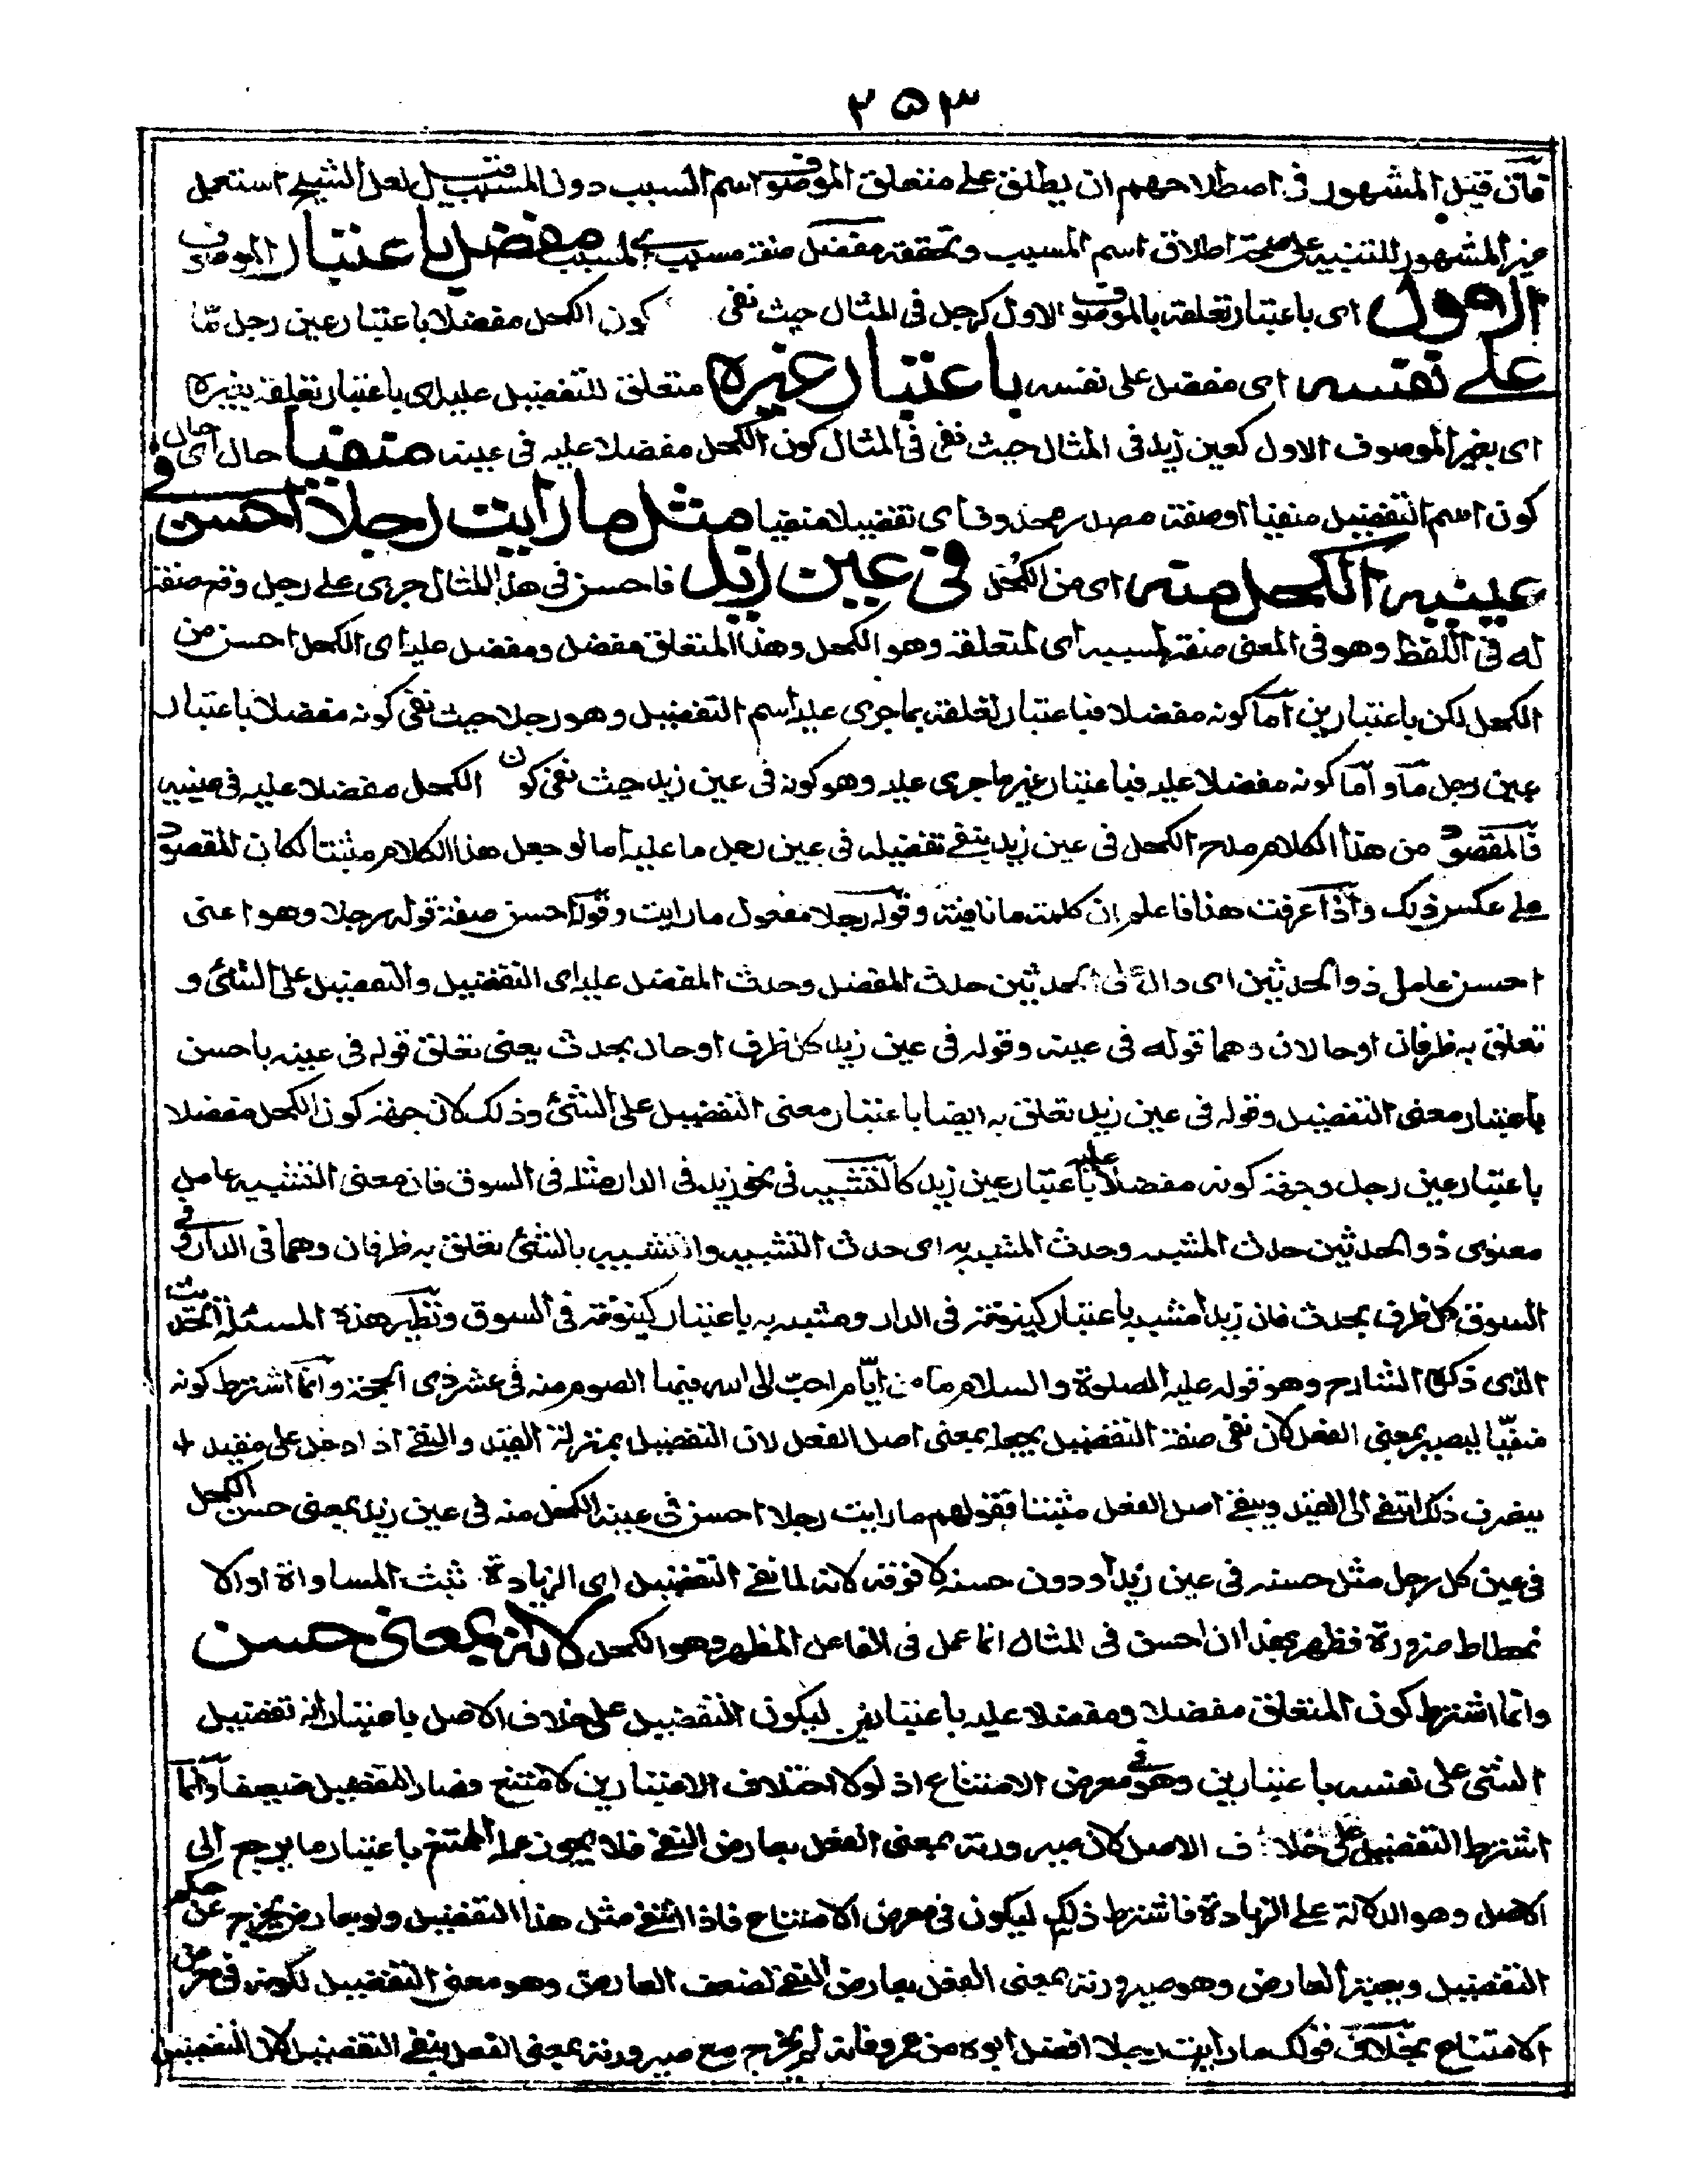 ٢٥٣
فان قيل المشهور في اصطلاحهم ان يطلق على متعلق الموصوف اسم السبب دون المسبب قلت لعل الشيخ استعمل
غير المشهور للتنبيه على صحة اطلاق اسم المسبب وتحققه مفضل صفة مسبب المسبب مفضل باعتبار الموصوف
الاول اى باعتبار تعلقه بالموصوف الاول كرجل في المثال حيث نفى كون الكحل مفضلا باعتبار عين رجل مّا
على نفسه اى مفضل على نفسه باعتبار غيره متعلق للتفضيل عليه اى باعتبار تعلقه بغيره
اى بغير الموصوف الاول كعين زيد في المثال حيث نفى في المثال كون الكحل مفضلا عليه في عينه منفيا حال اى حال
كون اسم التفضيل منفيا او صفة مصدر محذوف اى تفضيلا منفيا مثل ما رايت رجلا احسن فى
عينيه الكحل منه اى من الكحل في عين زيد فاحسن في هذا المثال جرى على رجل وقع صفة
له في اللفظ وهو في المعنى صفة لمسببه اى لمتعلقه وهو الكحل وهذا المتعلق مفضل ومفضل عليه اى الكحل احسن من
الكحل لكن باعتبارين اما كونه مفضلا فباعتبار تعلقه بما جرى عليه اسم التفضيل وهو رجلا حيث نفى كونه مفضلا باعتبار
عين رجل ما واما كونه مفضلا عليه فباعتبار غير ما جرى عليه وهو كونه في عين زيد حيث نفى كون الكحل مفضلا عليه في عينيه
فالمقصود من هذا الكلام مدح الكحل في عين زيد بنفي تفضيله في عين رجل ما عليه اما لو جعل هذا الكلام مثبتا لكان المقصود
على عكس ذلك واذا عرفت هذا فاعلم ان كلمة ما نافية وقوله رجلا مفعول ما رايت وقوله احسن صفة قوله رجلا وهو اعنى
احسن عامل ذو الحدثين اى دال على الحدثين حدث المفضل وحدث المفضل عليه اى التفضيل والتفضيل على الشئ و
تعلق به ظرفان او حالان وهما قوله في عينه وقوله في عين زيد كل ظرف او حال بحدث يعنى تعلق قوله في عينه باحسن
باعتبار معنى التفضيل وقوله في عين زيد تعلق به ايضا باعتبار معنى التفضيل على الشئ وذلك لان جهة كون الكحل مفضلا
باعتبار عين رجل وجهة كونه مفضلا عليه باعتبار عين زيد كالتشبيه في نحو زيد في الدار مثله في السوق فان معنى التشبيه عامل
معنوى ذو الحدثين حدث المشبه وحدث المشبه به اى حدث التشبيه والتشبيه بالشئ تعلق به ظرفان وهما في الدار وفي
السوق كل ظرف بحدث فان زيدا مشبه باعتبار كينونته في الدار ومشبه به باعتبار كينونته في السوق ونظير هذه المسئلة الحديث
الذى ذكره الشارح وهو قوله عليه الصلوة والسلام ما من ايّام احبّ الى الله فيها الصوم منه في عشر ذى الحجة وانما اشترط كونه
منفيّا ليصير بمعنى الفعل لان نفى صفة التفضيل يجعله بمعنى اصل الفعل لان التفضيل بمنزلة القيد والنفي اذا دخل على مقيد
ينصرف ذلك النفي الى القيد ويبقى اصل الفعل مثبتا فقولهم ما رايت رجلا احسن في عينه الكحل منه في عين زيد بمعنى حسن الكحل
في عين كل رجل مثل حسنه في عين زيد او دون حسنه لا فوقه لانه لما نفى التفضيل اى الزيادة ثبت المساواة او الا
نحطاط ضرورة فظهر بهذا ان احسن في المثال انما عمل في الفاعل المظهر وهو الكحل لانه بمعنى حسن
وانما اشترط كون المتعلق مفضلا ومفضلا عليه باعتبارين ليكون التفضيل على خلاف الاصل باعتبار انه تفضيل
الشئ على نفسه باعتبارين وهو في معرض الامتناع اذ لولا اختلاف الاعتبارين لامتنع فصار التفضيل ضعيفا وانما
اشترط التفضيل على خلاف الاصل لان صيرورته بمعنى الفعل بعارض النفي فلا يجوز عمله الممتنع باعتبار ما يرجع الى
الاصل وهو الدلالة على الزيادة فاشترط ذلك ليكون في معرض الامتناع فاذا انتفى مثل هذا التفضيل ولو بعارض يخرج عن حكم
التفضيل ويعتبر العارض وهو صيرورته بمعنى الفعل بعارض النفي لضعف العارض وهو معنى التفضيل لكونه في معرض
الامتناع بخلاف قولك ما رايت رجلا افضل ابوه من عمرو فانه لم يخرج مع صيرورته بمعنى الفعل بنفي التفضيل لان التفضيل